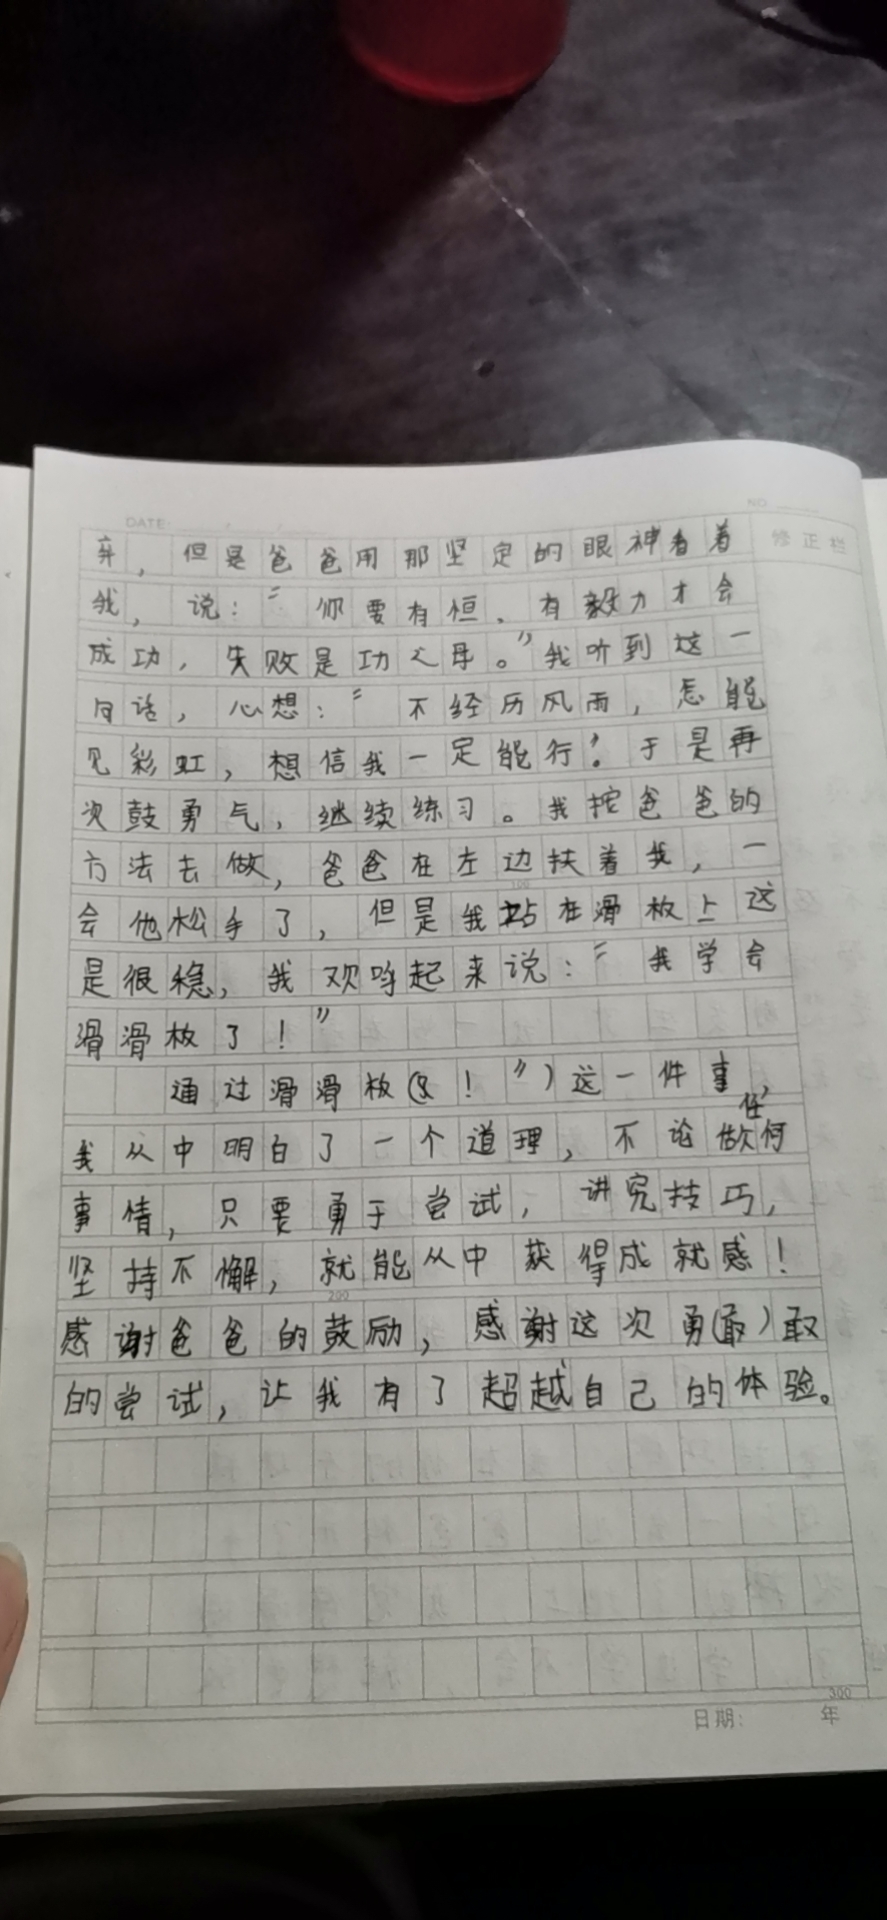 DATE:
NO
修正栏
弃，但是爸爸用那坚定的眼神看着
我，说：“你要有恒、有毅力才会
成功，失败是功之母。”我听到这一
句话，心想：“不经历风雨，怎能
见彩虹，想信我一定能行！于是再
次鼓勇气，继续练习。我按爸爸的
方法去做，爸爸在左边扶着我，一
会他松手了，但是我站在滑板上这
是很稳，我欢呼起来说：“我学会
滑滑板了！”
通过滑滑板（！”）这一件事，
我从中明白了一个道理，不论做任何
事情，只要勇于尝试，讲究技巧，
坚持不懈，就能从中获得成就感！
感谢爸爸的鼓励，感谢这次勇（敢）敢
的尝试，让我有了超越自己的体验。
100
200
300
日期： 年